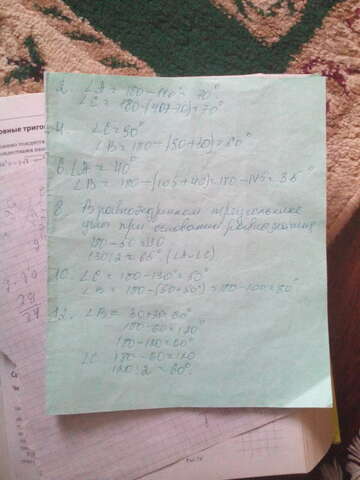 2. ∠B = 180 - 110° = 70°
∠C = 180 - (40+70) = 70°
4. ∠C = 50°
∠B = 180 - (50+50) = 80°
6. ∠A = 40°
∠B = 180 - (105+40) = 180 - 145 = 35°
8. В равнобедренном треугольнике
углы при основании
180 - 50 = 130
130:2 = 65° (∠A = ∠C)
10. ∠C = 180 - 130° = 50°
∠B = 180 - (50+50°) = 180 - 100 = 80°
12. ∠B = 30+30 = 60°
180 - 60 = 120°
180 - 120 = 60°
∠C 180 - 60 = 120
120:2 = 60°.